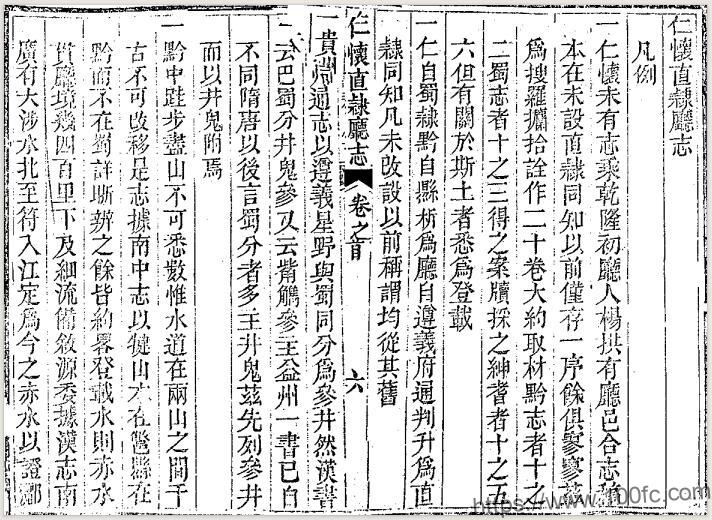 仁懷直隸廳志
凡例
一仁懷未有志乘乾隆初廳人楊拱有廳邑合志
本在未設直隸同知以前僅存一序餘俱寥寥
爲搜羅攟拾詮作二十卷大約取材黔志者十之
二蜀志者十之三得之案牘採之紳耆者十之五
六但有關於斯土者悉爲登載
一仁自蜀隸黔自縣析爲廳自遵義府通判升爲直
隸同知凡未改設以前稱謂均從其舊
仁懷直隸廳志 卷之首 六
一貴州通志以遵義星野與蜀同分爲參井然漢書
云巴蜀分井鬼參又云觜觿參主益州一書已自
不同隋唐以後言蜀分者多主井鬼茲先列參井
而以井鬼附焉
一黔中跬步盡山不可悉數惟水道在兩山之間千
古不可改移是志據南中志以犍山水在鄨縣在
黔而不在蜀詳晰辨之餘皆約畧登載水則赤水
貫廳境幾四百里下及細流備敘源委據漢志南
廣有大涉水北至符入江定爲今之赤水以證鄨
https://www.100fc.com